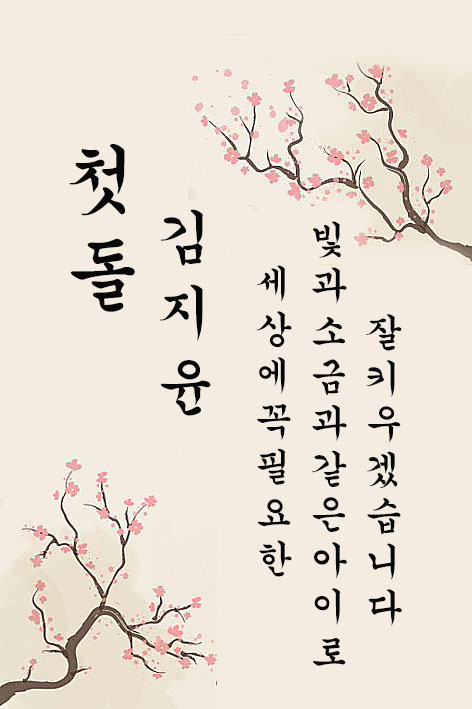 첫돌
김지윤
세상에꼭필요한
빛과소금과같은아이로
잘키우겠습니다